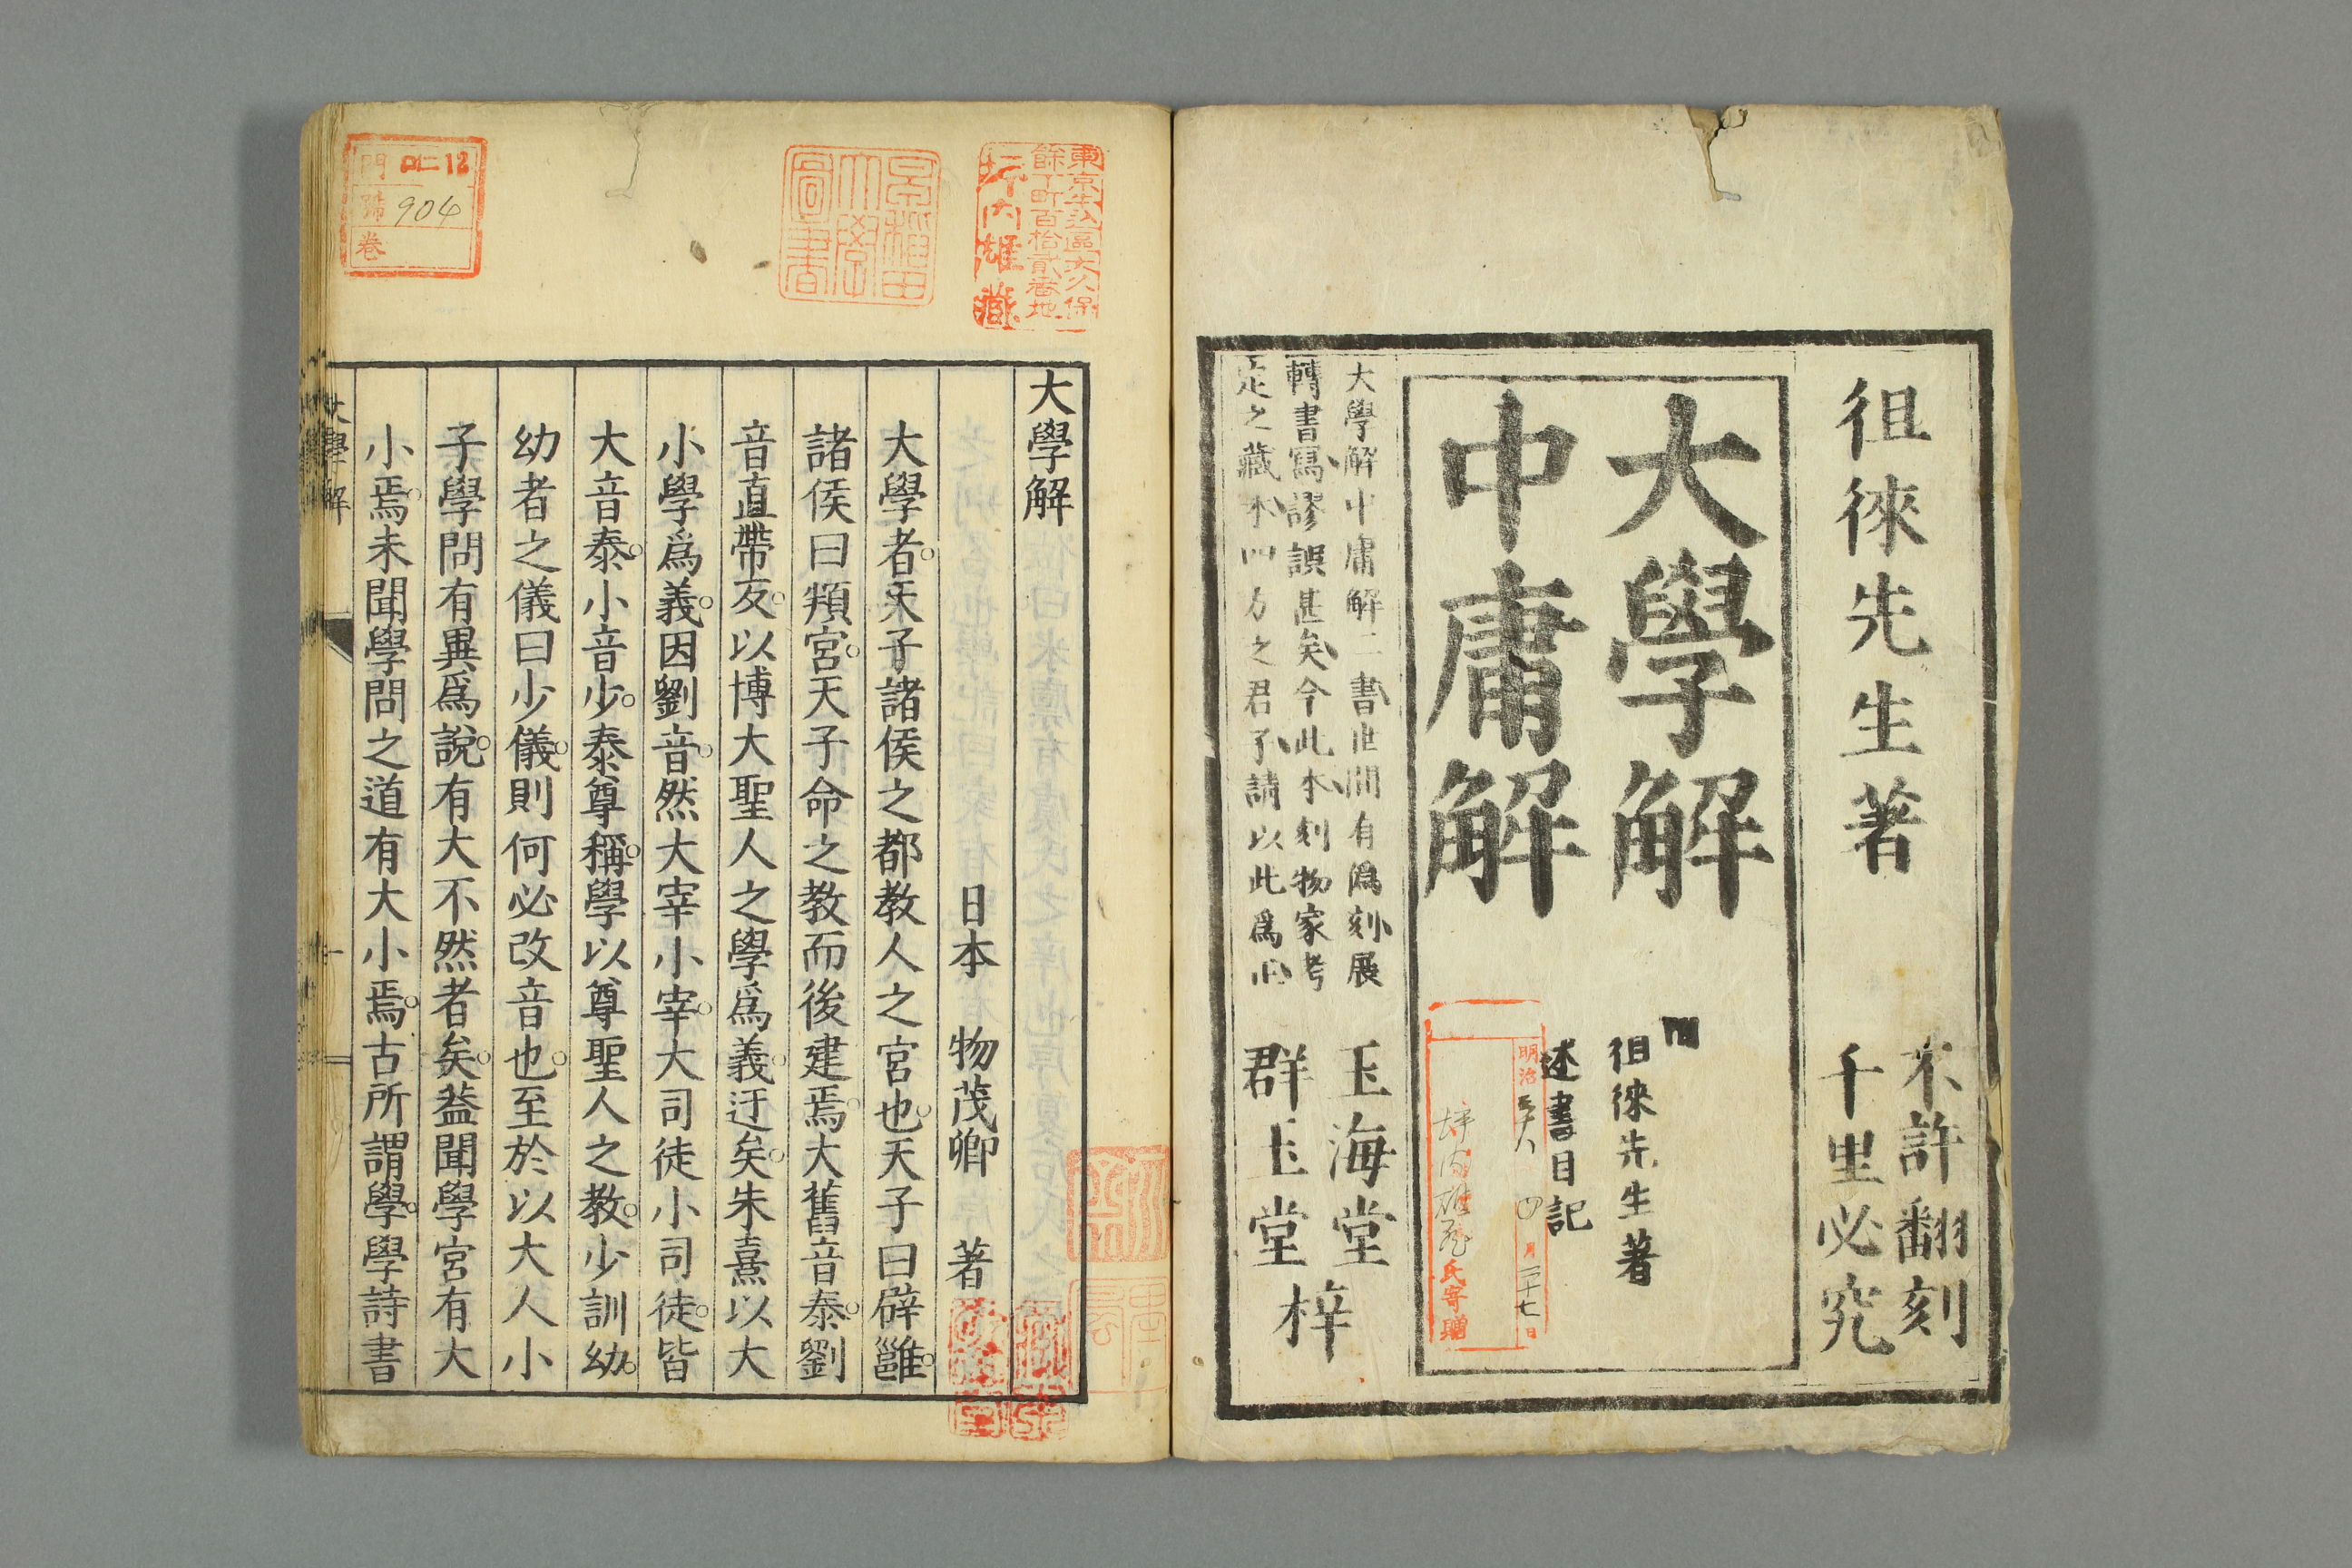 徂徠先生著
不許翻刻
千里必究
大學解
中庸解
徂徠先生著
述書目記
明治三十八年四月二十七日
坪内雄蔵氏寄贈
大學解中庸解二書世間有僞刻展
轉書寫謬誤甚矣今此本刻物家考
定之藏本四方之君子請以此爲正
玉海堂
群玉堂
梓
東京牛込區大久保
餘丁町百拾貳番地
坪内雄藏
早稲田大學圖書
門 ロ仁12
號 904
卷
大學解
日本 物茂卿 著
大學者天子諸侯之都教人之宮也天子曰辟雝
諸侯曰頖宮天子命之教而後建焉大舊音泰劉
音直帶反以博大聖人之學爲義迂矣朱熹以大
小學爲義因劉音然大宰小宰大司徒小司徒皆
大音泰小音少泰尊稱學以尊聖人之教少訓幼
幼者之儀曰少儀則何必改音也至於以大人小
子學問有異爲說有大不然者矣蓋聞學宮有大
小焉未聞學問之道有大小焉古所謂學學詩書
大學解
一